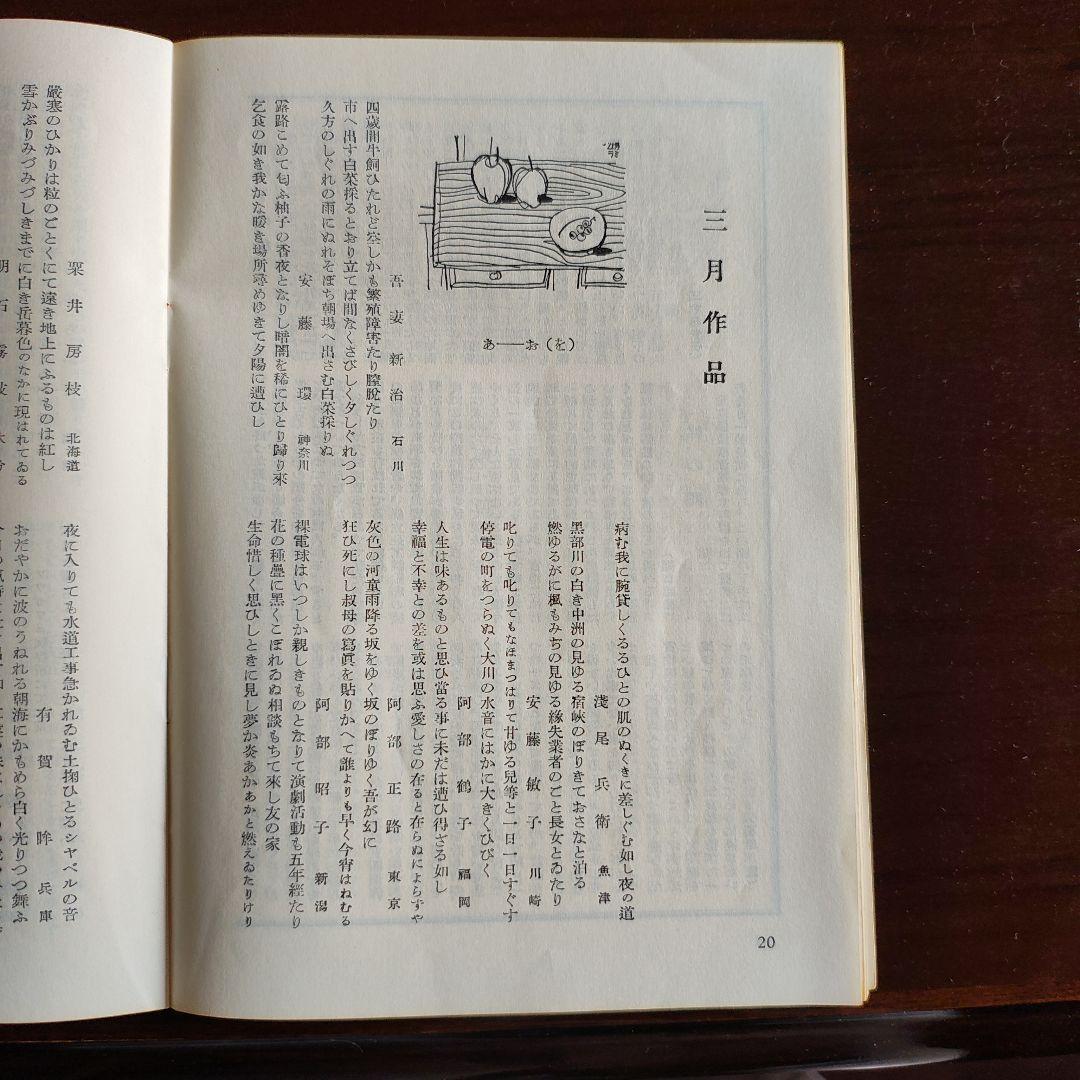 三月作品
あ——お（を）
吾妻新治 石川
四歳間牛飼ひたれど空しかも繁殖障害たり膣脱たり
市へ出す白菜採るとおり立てば間なくさびしく夕しぐれつつ
久方のしぐれの雨にぬれそぼち朝場へ出さむ白菜採りぬ
安藤環 神奈川
露路こめて匂ふ柚子の香夜となりし暗闇を稀にひとり歸り來
乞食の如き我かな暖き場所尋めゆきて夕陽に遭ひし
病む我に腕貸しくるるひとの肌のぬくきに差しぐむ如し夜の道
淺尾兵衛 魚津
黑部川の白き中洲の見ゆる宿峽のぼりきておさなと泊る
燃ゆるがに楓もみぢの見ゆる緣失業者のごと長女とゐたり
安藤敏子 川崎
叱りても叱りてもなほまつはりて甘ゆる兒等と一日一日すぐす
停電の町をつらぬく大川の水音にはかに大きくひびく
阿部鶴子 福岡
人生は味あるものと思ひ當る事に未だは遭ひ得ざる如し
幸福と不幸との差を或は思ふ愛しさの在ると在らぬによらずや
阿部正路 東京
灰色の河童雨降る坂をゆく坂のぼりゆく吾が幻に
狂ひ死にし叔母の寫眞を貼りかへて誰よりも早く今宵はねむる
阿部昭子 新潟
裸電球はいつしか親しきものとなりて演劇活動も五年經たり
花の種疊に黑くこぼれゐぬ相談もちて來し友の家
生命惜しく思ひしときに見し夢か炎あかあかと燃えゐたりけり
20
粟井房枝 北海道
嚴寒のひかりは粒のごとくにて遠き地上にふるものは紅し
雪かぶりみづみづしきまでに白き岳暮色のなかに現はれてゐる
夜に入りても水道工事急かれゐむ土掬ひとるシヤベルの音
有賀眸 兵庫
おだやかに波のうねれる朝海にかもめら白く光りつつ舞ふ